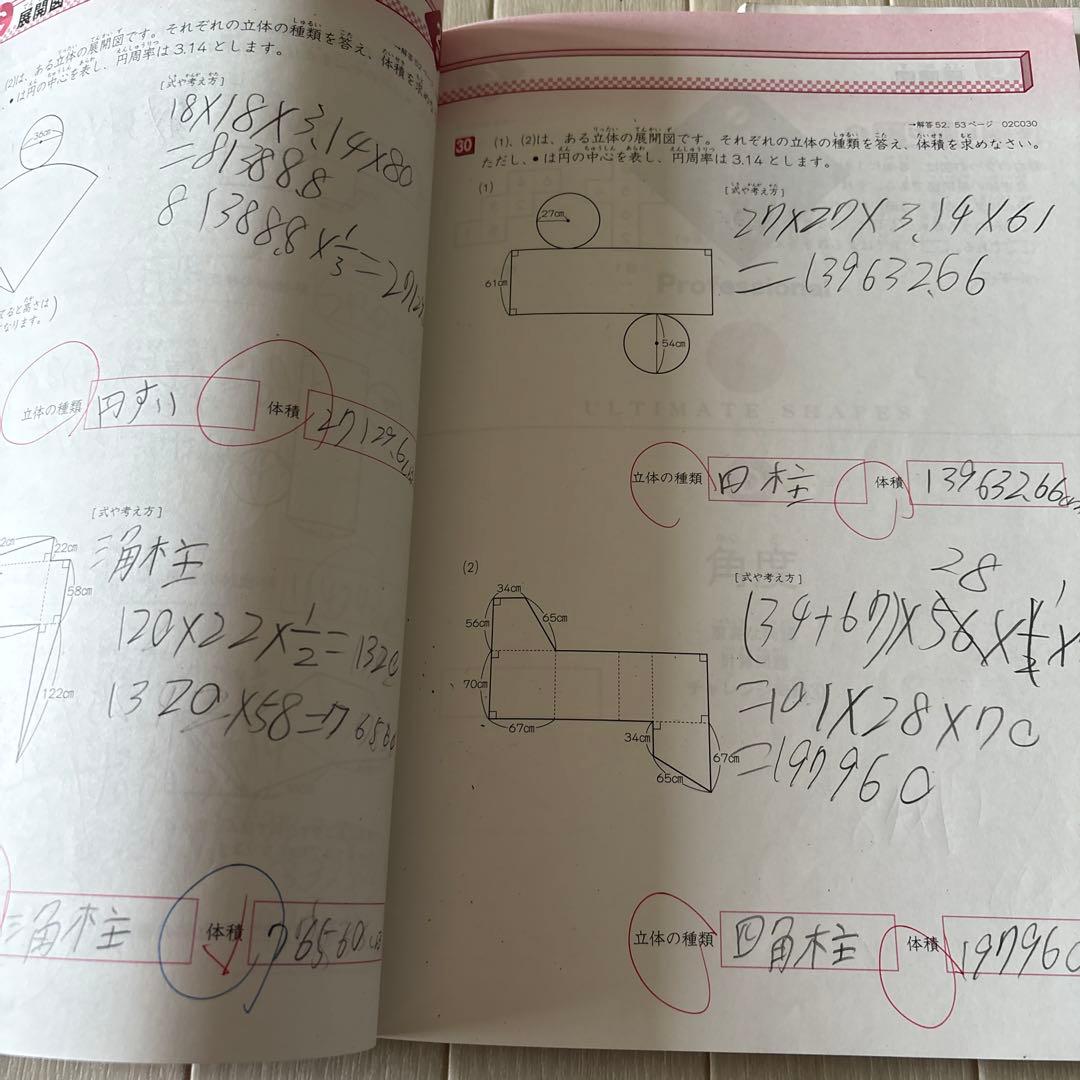 展開図
(2)は、ある立体の展開図です。それぞれの立体の種類を答え、体積を求め
、●は円の中心を表し、円周率は3.14とします。
→解答52
[式や考え方]
36cm
18×18×3.14×80
=81388.8
81388.8×1/3=2712
てると高さは
なります。)
立体の種類 円すい 体積 27129.6
[式や考え方]
22cm
58cm
122cm
三角柱
120×22×1/2=1320
1320×58=76560
三角柱 体積 76560
→解答52、53ページ 02C030
30 (1)、(2)は、ある立体の展開図です。それぞれの立体の種類を答え、体積を求めなさい。
ただし、●は円の中心を表し、円周率は3.14とします。
(1)
[式や考え方]
27cm
61cm
54cm
27×27×3.14×61
=139632.66
ULTIMATE SHAPE
立体の種類 円柱 体積 139632.66
(2)
[式や考え方]
34cm
56cm
65cm
70cm
67cm
34cm
65cm
67cm
28
(34+67)×56×1/2×
=101×28×70
=197960
立体の種類 四角柱 体積 197960